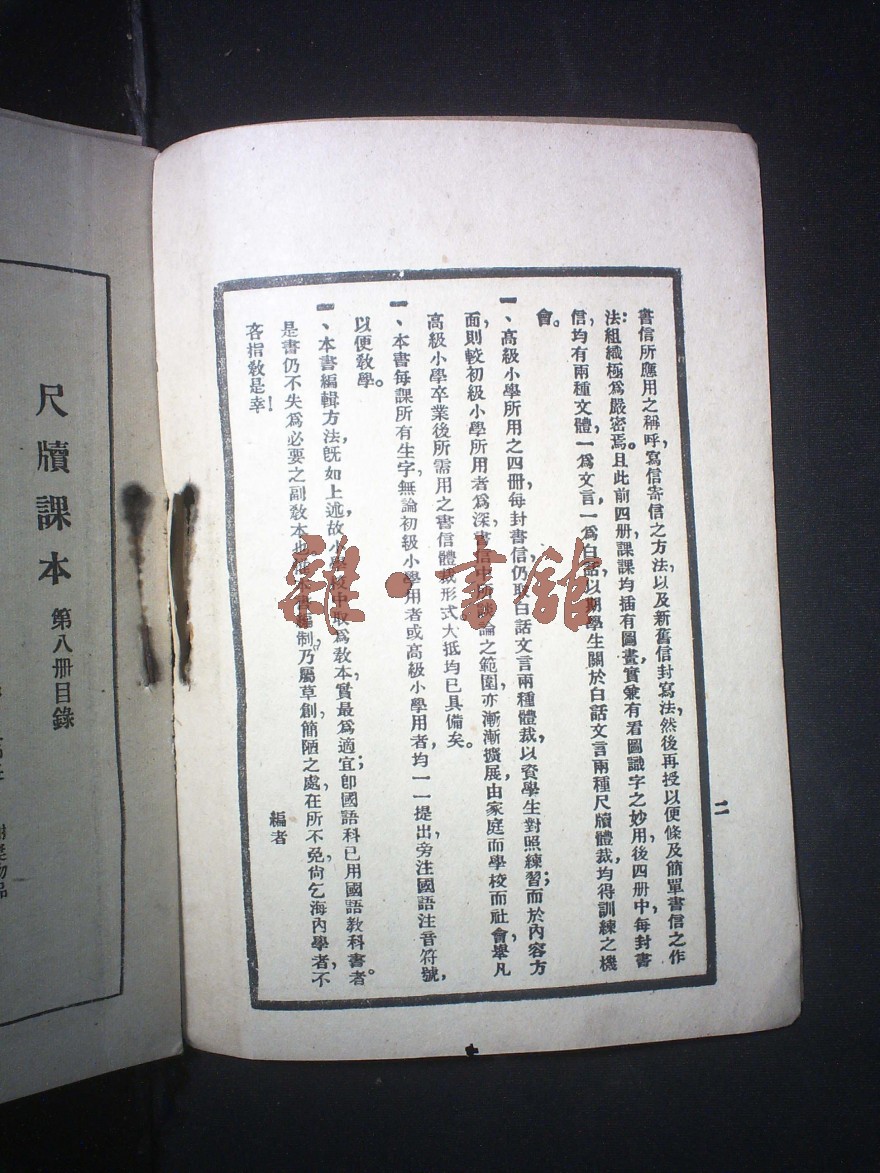 書信所應用之稱呼，寫信寄信之方法，以及新舊信封寫法，然後再授以便條及簡單書信之作
法：組織極爲嚴密焉。且此前四册，課課均插有圖畫，實兼有看圖識字之妙用，後四册中，每封書
信，均有兩種文體，一爲文言，一爲白話，以期學生關於白話文言兩種尺牘體裁，均得訓練之機
會。
一、高級小學所用之四册，每封書信，仍取白話文言兩種體裁，以資學生對照練習；而於內容方
面，則較初級小學所用者爲深，書信中所談論之範圍，亦漸漸擴展，由家庭而學校而社會，舉凡
高級小學卒業後所需用之書信體裁形式，大抵均已具備矣。
一、本書每課所有生字，無論初級小學用者，或高級小學用者，均一一提出，旁注國語注音符號，
以便敎學。
一、本書編輯方法，旣如上述，故小學校中取爲敎本，實最爲適宜；卽國語科已用國語敎科書者。
是書仍不失爲必要之副敎本也。制，乃屬草創，簡陋之處，在所不免，尙乞海內學者，不
吝指敎是幸！
編者
二
尺牘課本 第八册目錄
雜·書館